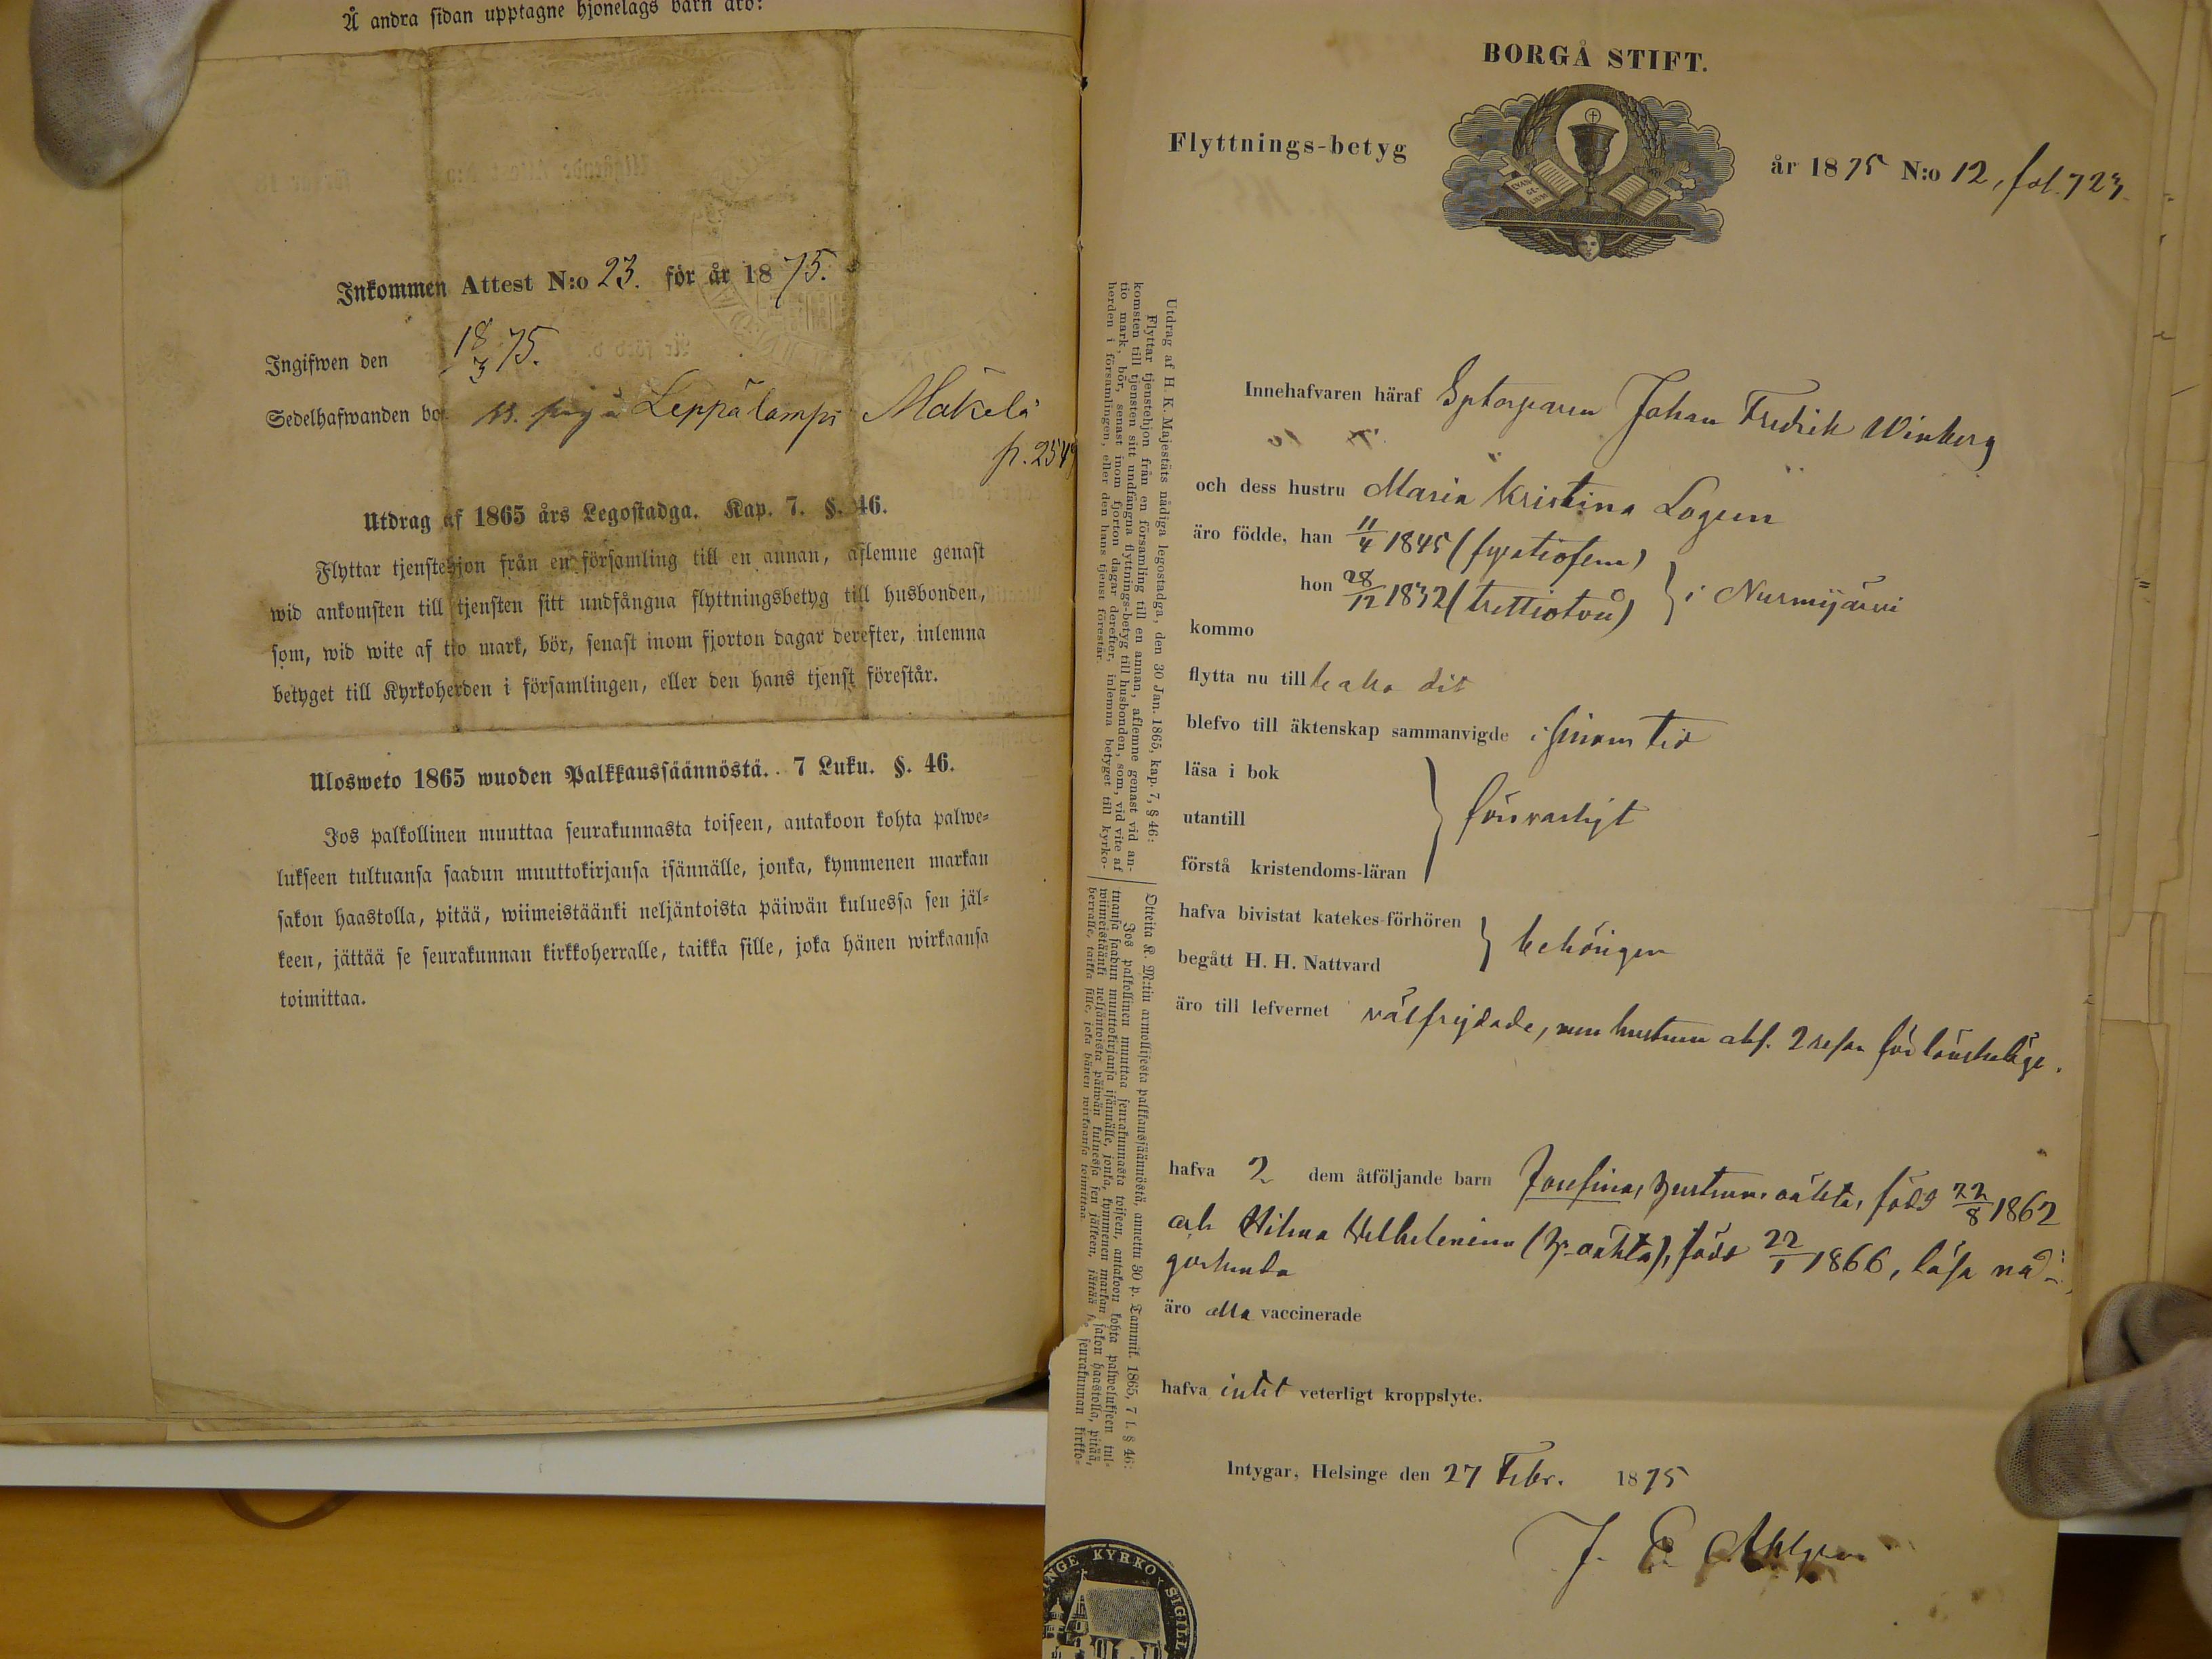 Å andra sidan upptagne hjonelags barn äro:
Inkommen Attest N:o 23. för år 1875.
Ingifwen den 18/3 75.
Sedelhafwanden bo Leppälampi Mäkelä
p. 254
Utdrag af 1865 års Legostadga. Kap. 7. §. 46.
Flyttar tjenstehjon från en församling till en annan, aflemne genast
wid ankomsten till tjensten sitt undfångna flyttningsbetyg till husbonden,
som, wid wite af tio mark, bör, senast inom fjorton dagar derefter, inlemna
betyget till Kyrkoherden i församlingen, eller den hans tjenst förestår.
Ulosweto 1865 wuoden Palkkaussäännöstä. 7 Luku. §. 46.
Jos palkollinen muuttaa seurakunnasta toiseen, antakoon kohta palwe-
lukseen tultuansa saadun muuttokirjansa isännälle, jonka, kymmenen markan
sakon haastolla, pitää, wiimeistäänki neljäntoista päiwän kuluessa sen jäl-
keen, jättää se seurakunnan kirkkoherralle, taikka sille, joka hänen wirkaansa
toimittaa.
BORGÅ STIFT.
EVAN-
GE-
LIUM
Flyttnings-betyg år 1875 N:o 12, fol. 723.
Utdrag af H. K. Majestäts nådiga legostadga, den 30 Jan. 1865, kap. 7, § 46:
Flyttar tjenstehjon från en församling till en annan, aflemne genast vid an-
komsten till tjensten sitt undfångna flyttnings-betyg till husbonden, som, vid vite af
tio mark, bör, senast inom fjorton dagar derefter, inlemna betyget till kyrko-
herden i församlingen, eller den hans tjenst förestår.
Otteita K. M:tin armollisesta palkkaussäännöstä, annettu 30 p. Tammik. 1865, 7 l. § 46:
Jos palkollinen muuttaa seurakunnasta toiseen, antakoon kohta palwelukseen tul-
tuansa saadun muuttokirjansa isännälle, jonka, kymmenen markan sakon haastolla, pitää,
wiimeistäänki neljäntoista päiwän kuluessa sen jälkeen, jättää se seurakunnan kirkko-
herralle, taikka sille, joka hänen wirkaansa toimittaa.
Innehafvaren häraf Sptorparen Johan Fredrik Winberg
och dess hustru Maria Kristina Logren
äro födde, han 11/4 1845 (fyratiofem)
hon 28/12 1832 (trettiotvå) } i Nurmijärvi
kommo
flytta nu till baka dit
blefvo till äktenskap sammanvigde i sinom tid
läsa i bok
utantill } försvarligt
förstå kristendoms-läran
hafva bivistat katekes-förhören
begått H. H. Nattvard } behörigen
äro till lefvernet välfrejdade, men hustrun abs. 2 resan för lönskaläge.
hafva 2 dem åtföljande barn Josefina, hustruns oäkta, född 22/8 1862
och Hilma Wilhelmina (h:s oäkta), född 22/1 1866, läsa nå-
gorlunda
äro alla vaccinerade
hafva intet veterligt kroppslyte.
Intygar, Helsinge den 27 Febr. 1875
J. E. Ahlgren
INGE KYRKO SIGILL